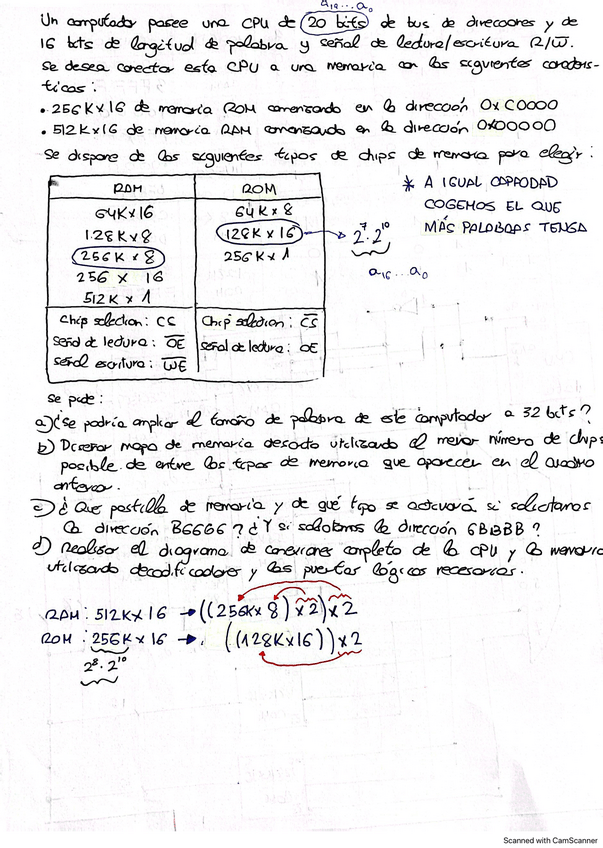 a19...a0
Un computador posee una CPU de 20 bits de bus de direcciones y de
16 bits de longitud de palabra y señal de lectura/escritura R/W.
Se desea conectar esta CPU a una memoria con las siguientes caracterís-
ticas:
• 256K×16 de memoria ROM comenzando en la dirección 0xC0000
• 512K×16 de memoria RAM comenzando en la dirección 0x00000
Se dispone de los siguientes tipos de chips de memoria para elegir:
RAM ROM
64K×16 64K×8
128K×8 128K×16
256K×8 256K×1
256 × 16
512K × 1
Chip selection: CS Chip selection: CS
Señal de lectura: OE Señal de lectura: OE
Señal escritura: WE
* A IGUAL CAPACIDAD
COGEMOS EL QUE
MÁS PALABRAS TENGA
2^7·2^10
a16...a0
Se pide:
a) ¿Se podría ampliar el tamaño de palabra de este computador a 32 bits?
b) Diseñar mapa de memoria descrito utilizando el menor número de chips
posible de entre los tipos de memoria que aparecen en el cuadro
anterior.
c) ¿Qué pastilla de memoria y de qué tipo se activará si solicitamos
la dirección B6666? ¿Y si solicitamos la dirección 6BBBB?
d) Realizar el diagrama de conexiones completo de la CPU y la memoria
utilizando decodificadores y las puertas lógicas necesarias.
RAM: 512K×16 → ((256K×8)×2)×2
ROM: 256K×16 → ((128K×16))×2
2^8·2^10
Scanned with CamScanner